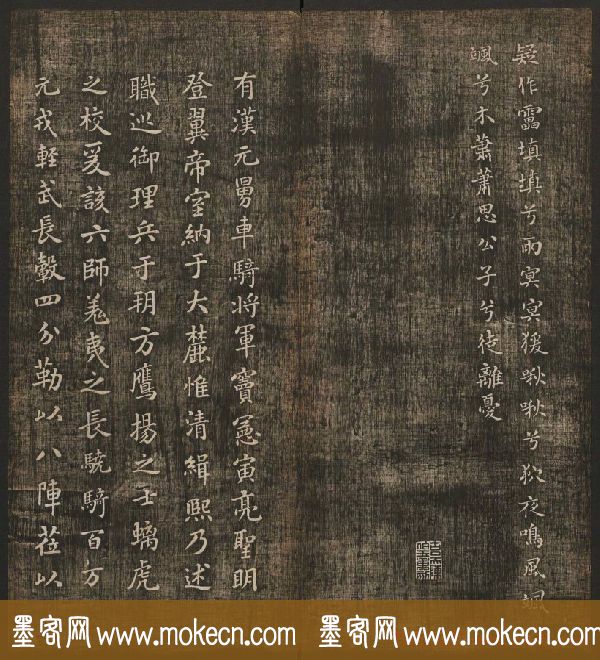 疑作靁填填兮雨冥冥猨啾啾兮狖夜鳴風颯
颯兮木蕭蕭思公子兮徒離憂
有漢元舅車騎將軍竇憲寅亮聖明
登翼帝室納于大麓惟清緝熙乃述
職巡御理兵于朔方鷹揚之士螭虎
之校爰該六師羌夷之長驍騎百万
元戎輕武長轂四分勒以八陣莅以
墨客网 www.mokecn.com 墨客网 www.mokecn.com